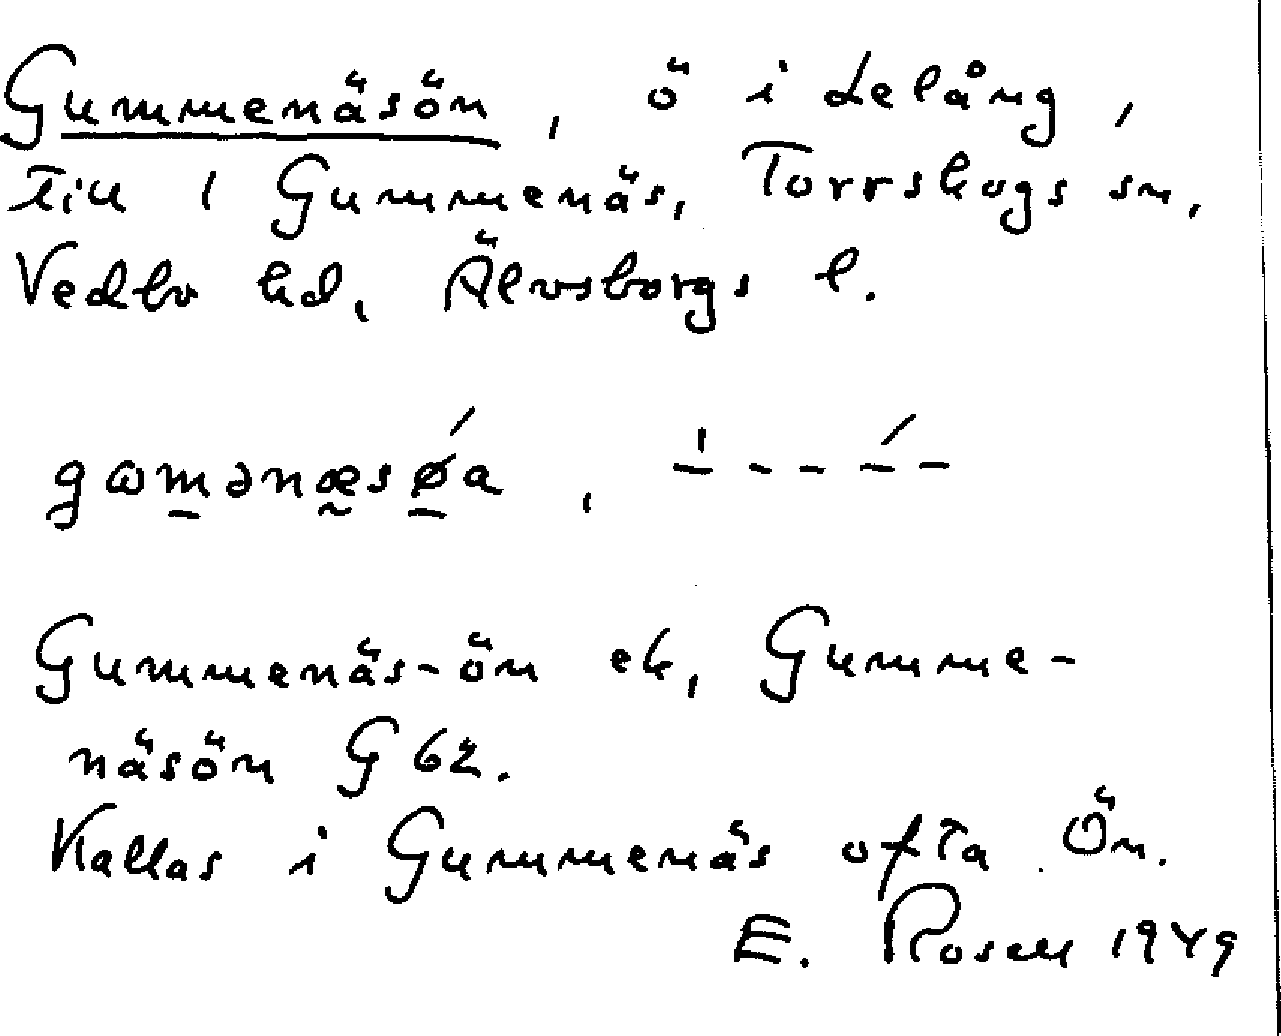 Gummenäsön, ö i Lelång,
till 1 Gummenäs, Torrskogs sn,
Vedbo hd, Älvsborgs l.
gɷm̱ənæ̰sǿ̱a,
Gummenäs-ön ek, Gumme-
näsön G 62.
Kallas i Gummenäs ofta Ön.
E. Rosell 1949